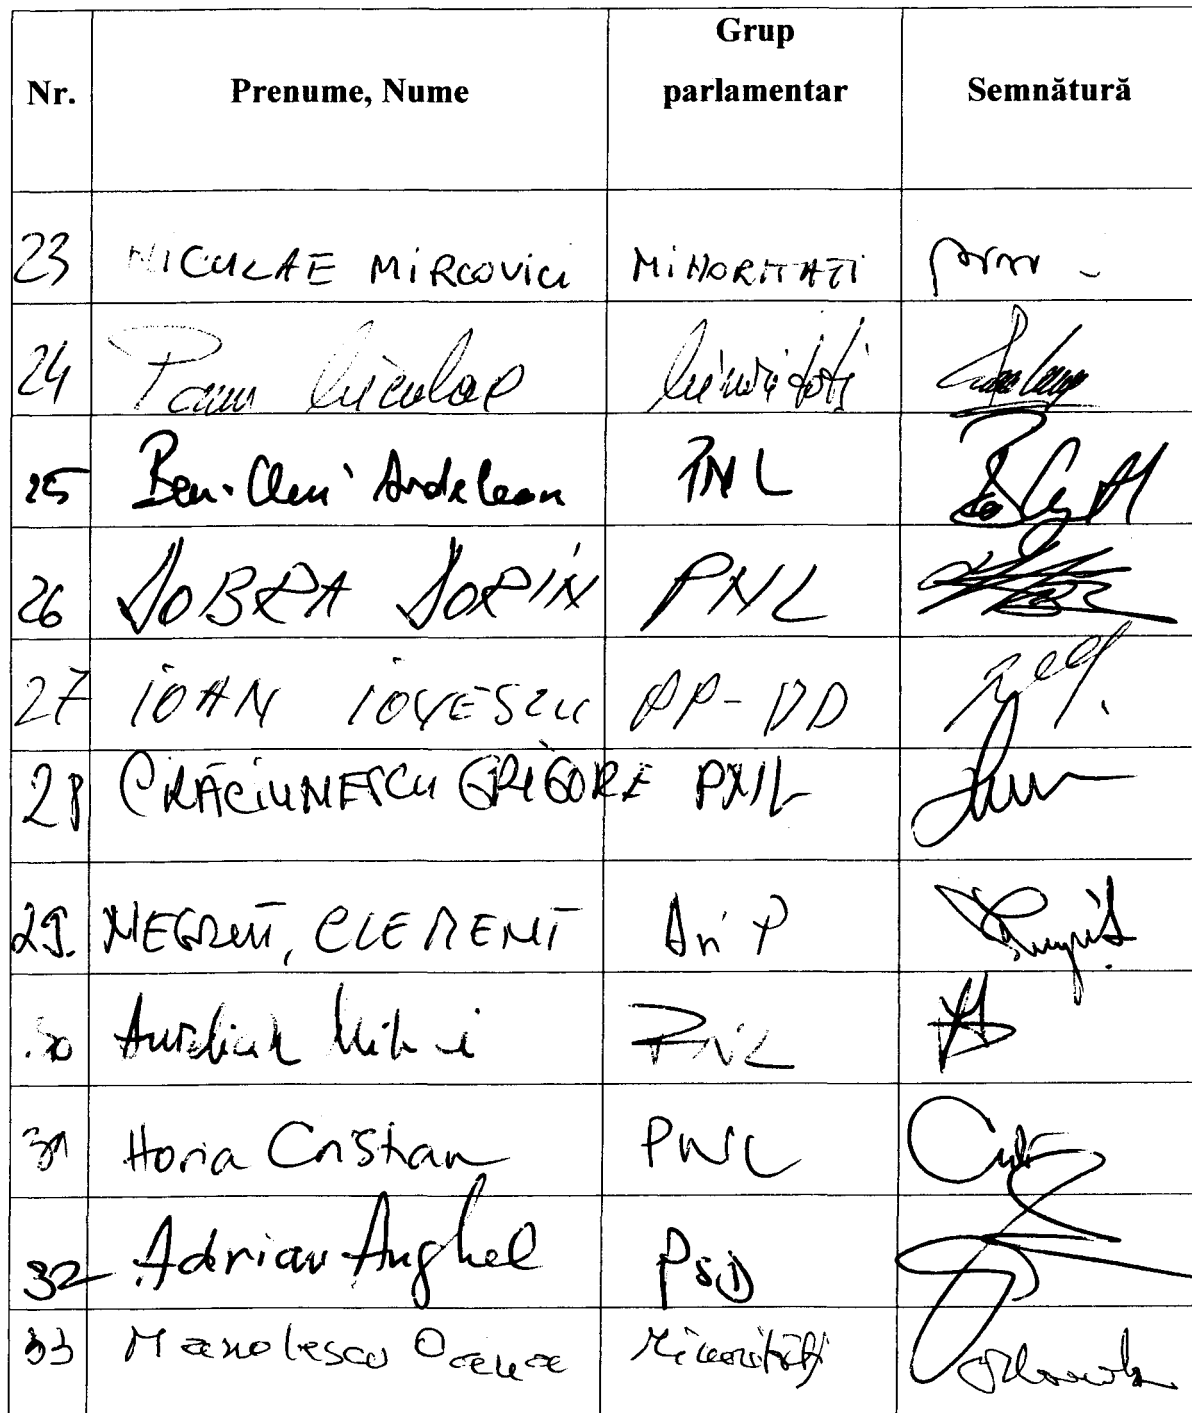 Nr. Prenume, Nume Grup parlamentar Semnătură
23 NICULAE MIRCOVICI MINORITATI
24 Păun Nicolae Minorități
25 Ben-Oni Ardelean PNL
26 DOBRA DORIN PNL
27 IOAN IOVESCU PP-DD
28 CRĂCIUNESCU GRIGORE PNL
29. NEGRUȚ, CLEMENT
30 Aurelian Mihai PNL
31 Horia Cristian PNL
32 Adrian Anghel PSD
33 Manolescu Oana Minorități